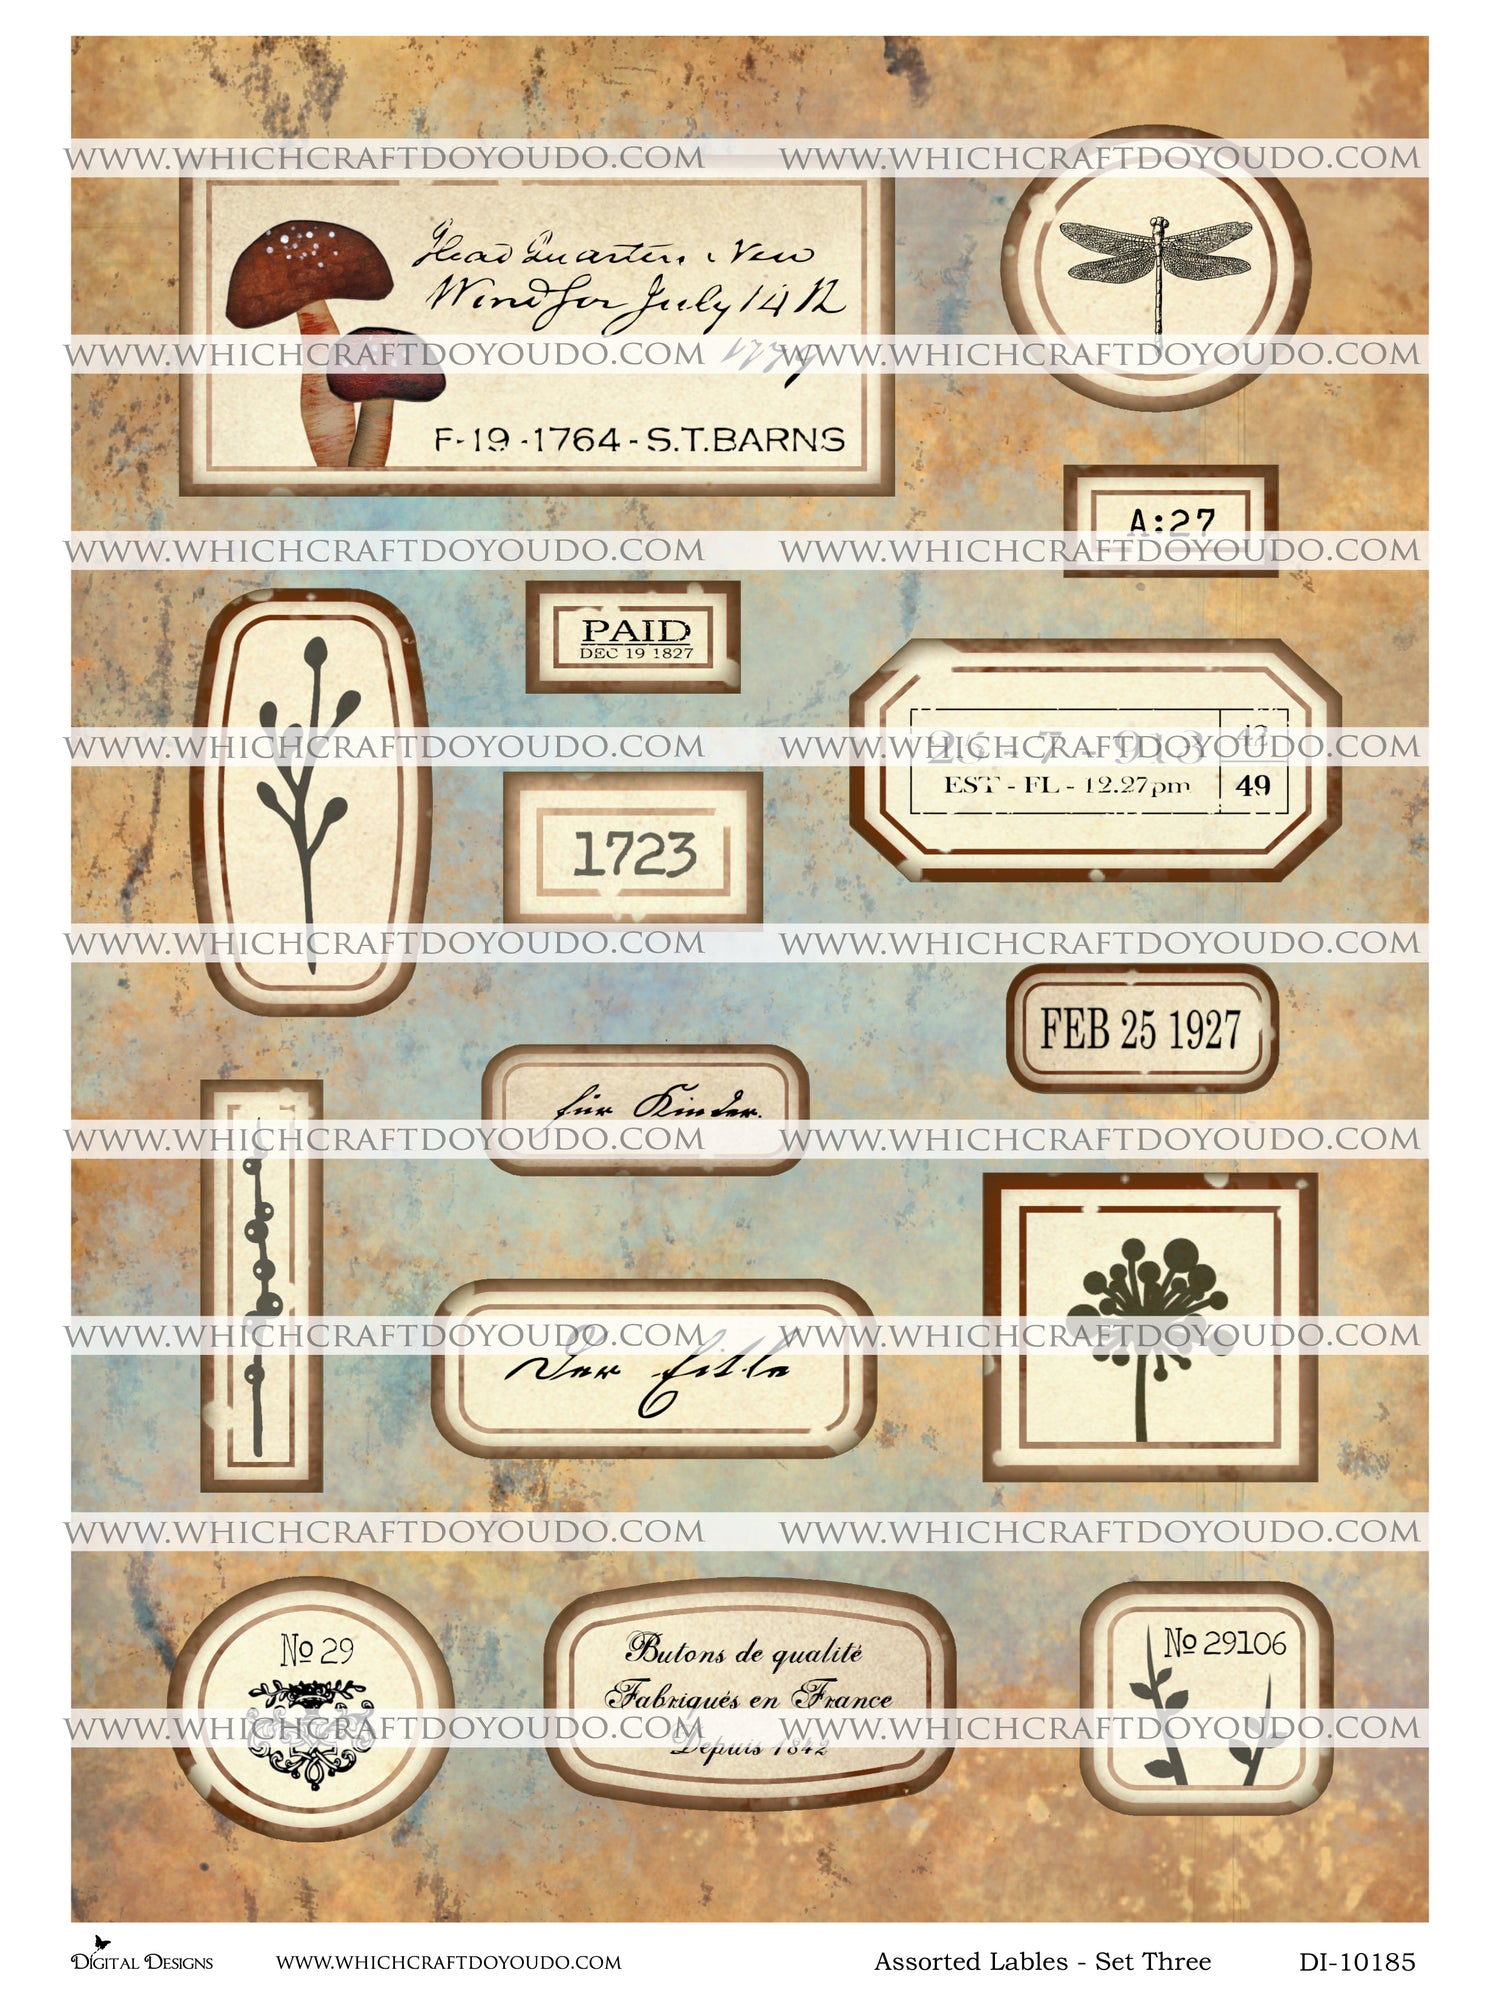 WWW.WHICHCRAFTDOYOUDO.COM WWW.WHICHCRAFTDOYOUDO.COM
Head Quarters New
Windsor July 14th
1779
F-19-1764-S.T.BARNS
WWW.WHICHCRAFTDOYOUDO.COM WWW.WHICHCRAFTDOYOUDO.COM
A:27
WWW.WHICHCRAFTDOYOUDO.COM WWW.WHICHCRAFTDOYOUDO.COM
PAID
DEC 19 1827
26 - 7 - 913 42
WWW.WHICHCRAFTDOYOUDO.COM WWW.WHICHCRAFTDOYOUDO.COM
EST - FL - 12.27pm 49
1723
WWW.WHICHCRAFTDOYOUDO.COM WWW.WHICHCRAFTDOYOUDO.COM
FEB 25 1927
für Kinder.
WWW.WHICHCRAFTDOYOUDO.COM WWW.WHICHCRAFTDOYOUDO.COM
WWW.WHICHCRAFTDOYOUDO.COM WWW.WHICHCRAFTDOYOUDO.COM
Der
WWW.WHICHCRAFTDOYOUDO.COM WWW.WHICHCRAFTDOYOUDO.COM
№ 29
Butons de qualité
Fabriqués en France
Depuis 1842
№ 29106
WWW.WHICHCRAFTDOYOUDO.COM WWW.WHICHCRAFTDOYOUDO.COM
DIGITAL DESIGNS WWW.WHICHCRAFTDOYOUDO.COM Assorted Lables - Set Three DI-10185